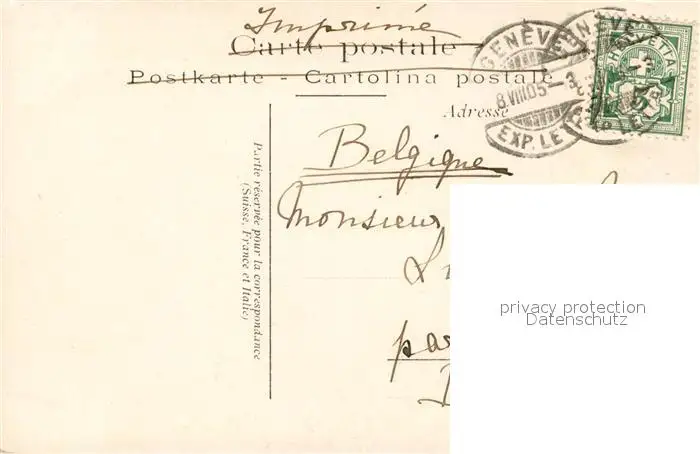 Imprimé
Carte postale
Postkarte - Cartolina postale
Adresse
GENÈVE
8.VIII.05-3
EXP. LET
GENÈVE
HELVETIA
5
Belgique
Monsieur
Partie réservée pour la correspondance
(Suisse, France et Italie)
privacy protection
Datenschutz